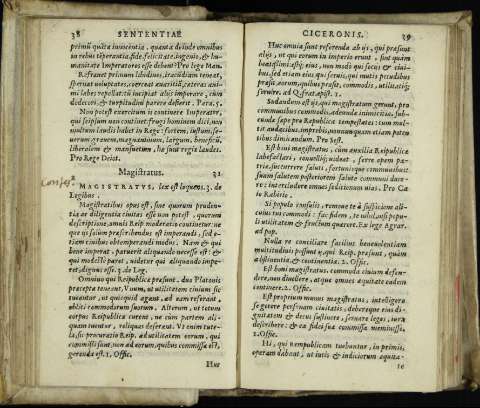 38 SENTENTIAE
primũ quãta innocentia, quanta deinde omnibus
in rebus tẽperantia, fide, felicitate, ingenio, & hu-
manitate Imperatores esse debent? Pro lege Man.
Refrænet primum libidines, iracũdiam teneat,
coerceat cæteras ani
mi labes repellat: tũ incipiat alijs imperare, cùm
dedecori, & turpitudini parere desierit. Para. 5.
Non potest exercitum is continere Imperator,
qui seipsum non continet: frugi hominem dici, non
multum laudis habet in Rege: fortem, iustum, se-
uerum, grauem, magnanimum, largum, beneficũ,
liberalem & mansuetum, hæ sunt regiæ laudes.
Pro Rege Deiot.
Magistratus. 31
MAGISTRATVS, lex est loquens. 3. de
Legibus.
Magistratibus opus est, sine quorum pruden-
tia ac diligentia ciuitas esse non potest, quorum
descriptione, omnis Reip. moderatio continetur: ne
que ijs solùm præscribendus est imperandi, sed e-
tiam ciuibus obtemperandi modus. Nam & qui
bene imperat, paruerit aliquando necesse est: &
qui modestè paret, videtur qui aliquando impe-
ret, dignus esse. 3. de Leg.
Omnino qui Reipublicæ præsunt, duo Platonis
præcepta teneant, Vnum, vt utilitatem ciuium sic
tueantur, ut quicquid agant, ad eam referant,
obliti commodorum suorum, Alterum, ut totum
corpus Reipublicæ curent, ne cùm partem ali-
quam tuentur, reliquas deserant. Vt enim tute-
la, sic procuratio Reip. ad utilitatem eorum, qui
commissi sunt, non ad eorum, quibus commissa est,
gerenda est. 1. Offic.
Huc
CICERONIS. 39
Huc omnia sunt referenda ab ijs, qui præsunt
alijs, ut qui eorum in imperio erunt, sint quàm
beatissimi: estq; eius, non modò qui socijs & ciui-
bus, sed etiam eius qui seruis, qui mutis pecudibus
præsit, eorum, quibus præsit, commodis, utilitatiq;
seruire. ad Q. frat. epist. 1.
Sudandum est ijs, qui magistratum gerunt, pro
communibus commodis, adeundæ inimicitiæ, sub-
eundæ sæpe pro Republica tempestates: cum mul-
tis audacibus, improbis, nonnunquam etiam poten
tibus dimicandum. Pro Sest.
Est boni magistratus, cùm auxilia Reipublicæ
labefactari, conuelliq; uideat, ferre opem pa-
triæ, succurrere saluti, fortunisque communibus:
suam salutem posteriorem salute communi duce-
re: intercludere omnes seditionum uias. Pro Ca-
io Rabirio.
Si populo consulis, remoue te à suspicione ali-
cuius tui commodi: fac fidem, te nihil, nisi popu-
li utilitatem & fructum quærere. Ex lege Agrar.
ad pop.
Nulla re conciliare facilius beneuolentiam
multitudinis possunt ij, qui Reip. præsunt, quàm
abstinentia, & continentia. 2. Offic.
Est boni magistratus, commoda ciuium defen-
dere, non diuellere, atque omnes æquitate eadem
continere. 2. Offic.
Est proprium munus magistratus, intelligere,
se gerere personam ciuitatis, debereque eius di-
gnitatem & decus sustinere, seruare leges, iura
describere: & ea fidei suæ commissa meminisse.
Offic.
Hi, qui rempublicam tuebuntur, in primis,
operam dabunt, ut iuris & iudiciorum æquita-
te